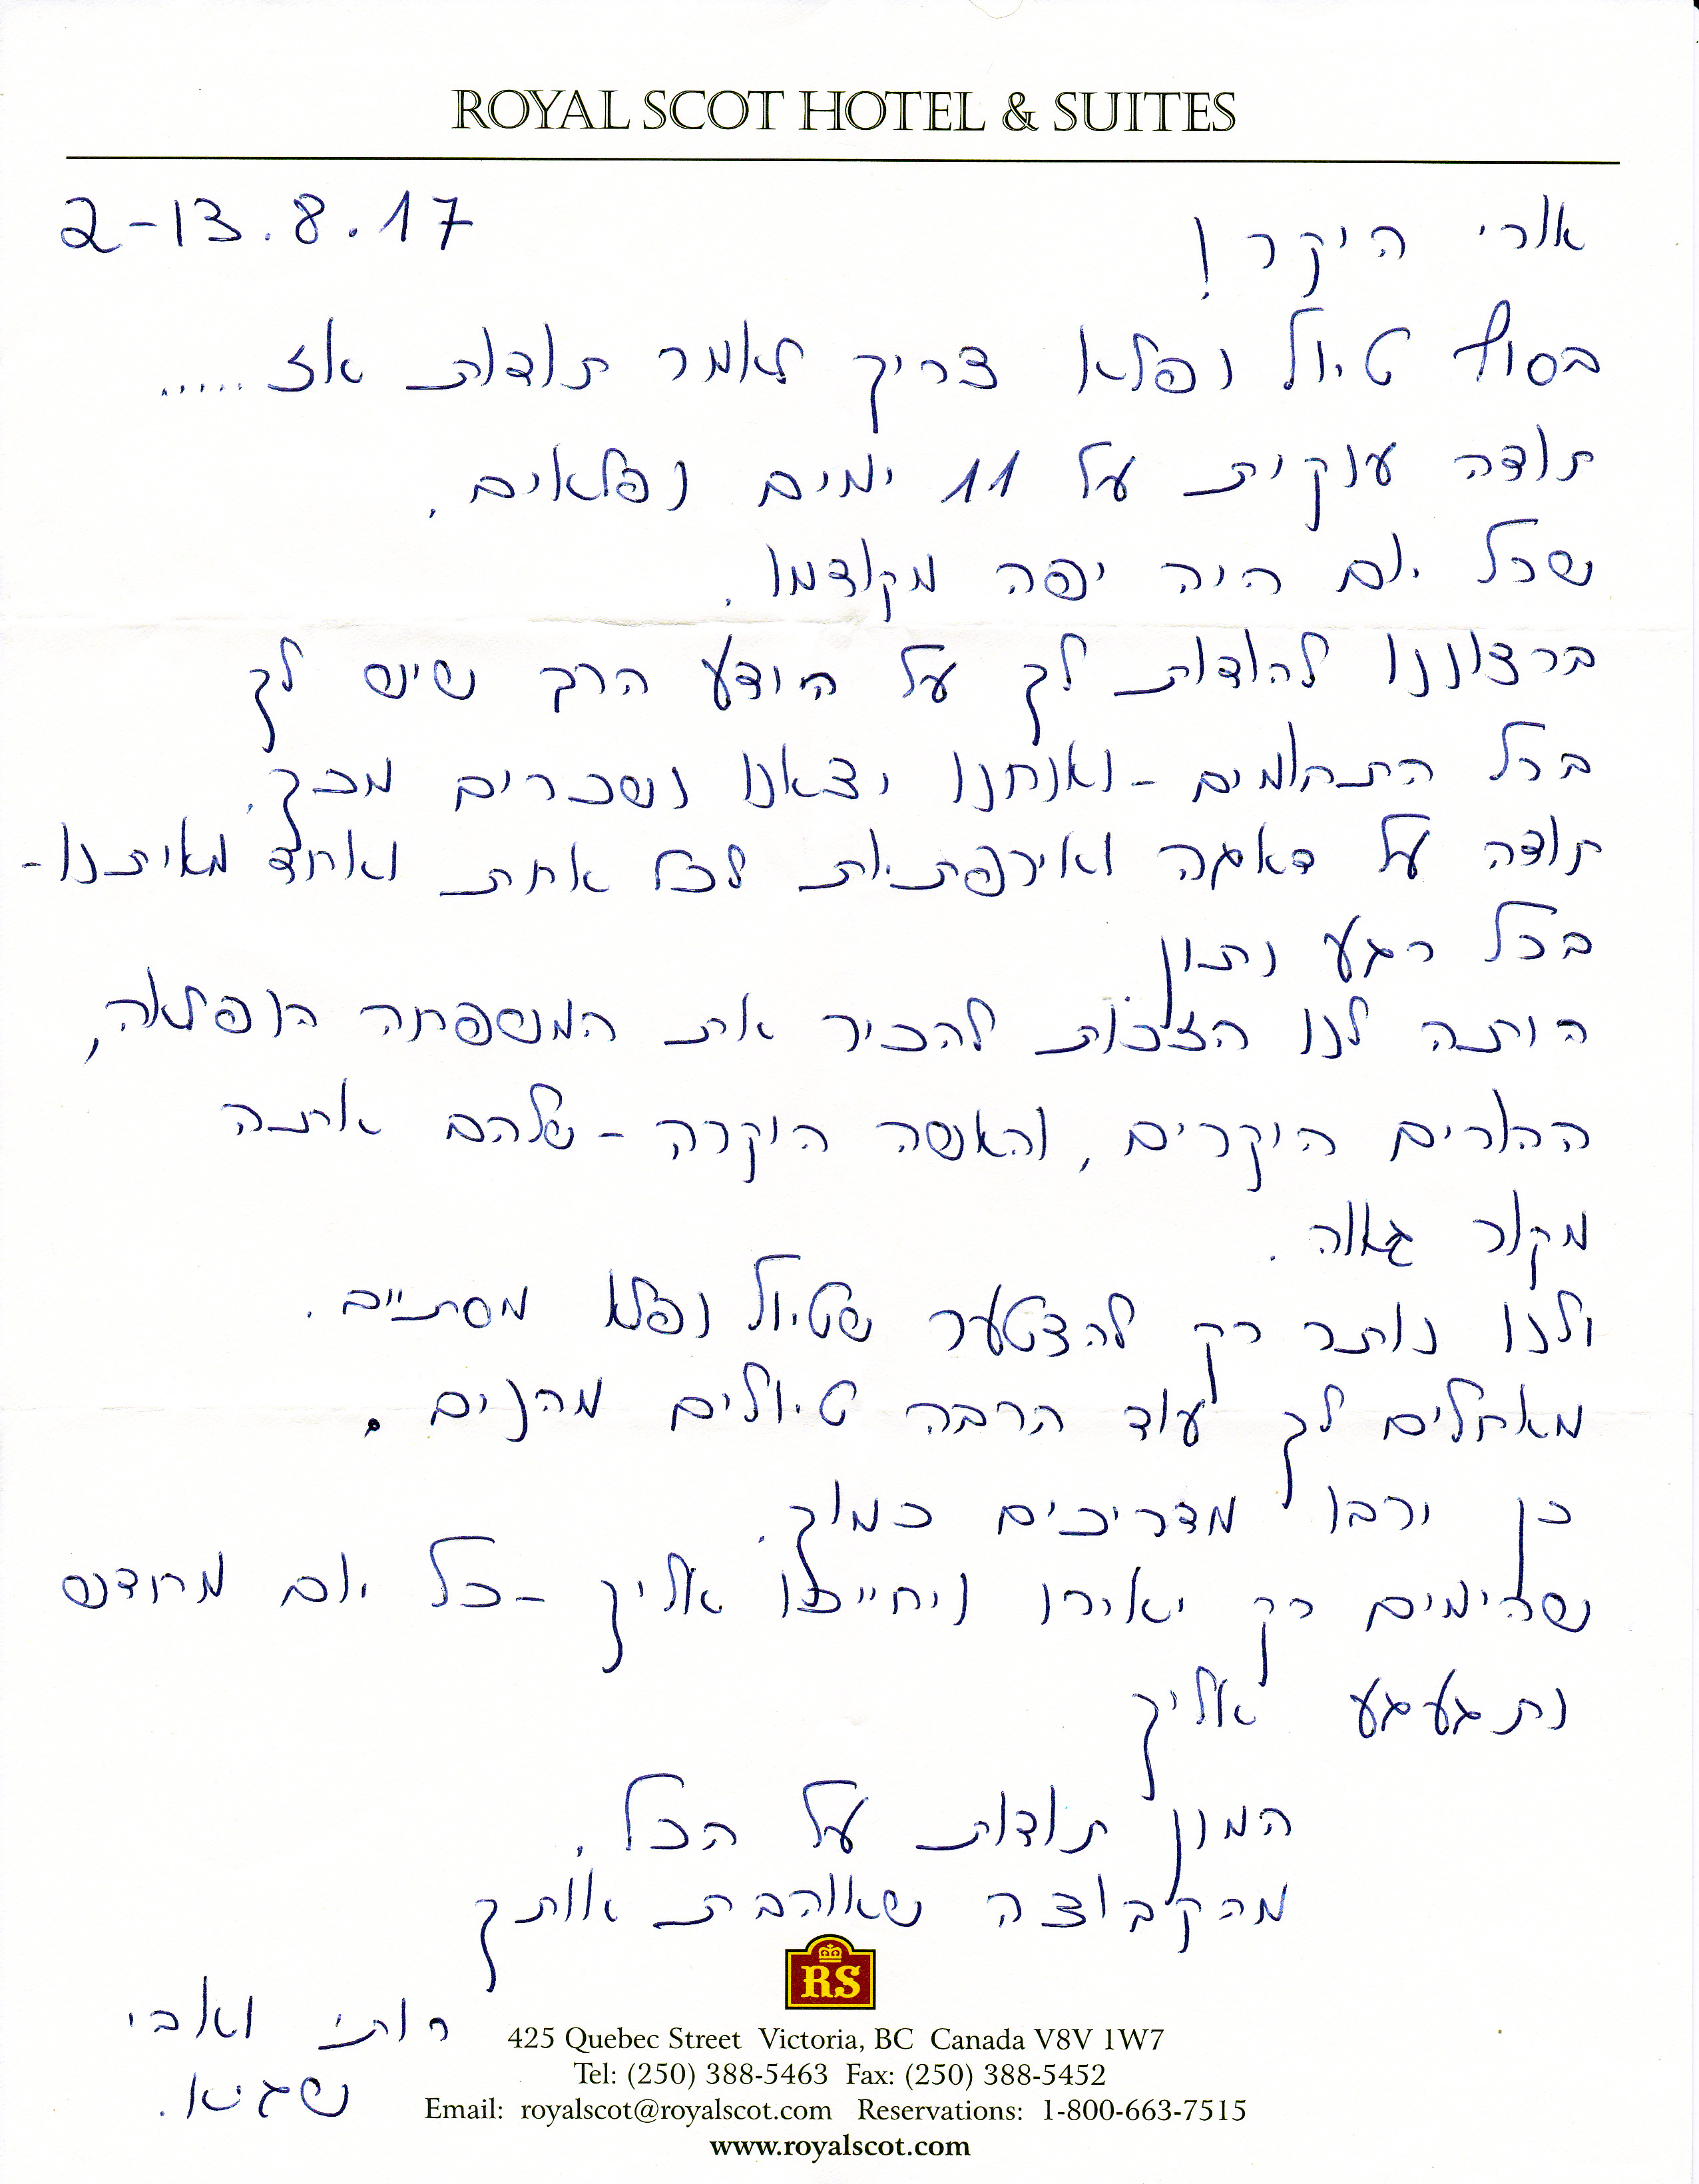 ROYAL SCOT HOTEL & SUITES
2-13.8.17
אורי היקר!
בסוף טיול נפלא צריך לאמר תודות אז .....
תודה ענקית על 11 ימים נפלאים.
שכל יום היה יפה מקודמו.
ברצוננו להודות לך על הידע הרב שיש לך
בכל התחומים - ואנחנו יצאנו נשכרים מכך.
תודה על דאגה ואיכפתיות לכל אחת ואחד מאיתנו-
בכל רגע נתון
היתה לנו הזכות להכיר את המשפחה הנפלאה,
ההורים היקרים, והאשה היקרה - שלהם אתה
מקור גאווה.
ולנו נותר רק להצטער שטיול נפלא מסתיים.
מאחלים לך עוד הרבה טיולים מהנים.
כן ירבו מדריכים כמוך.
שהימים רק יאירו ויחייכו אליך - כל יום מחדש
נתגעגע אליך
המון תודות על הכל.
מהקבוצה שאוהבת אותך
רותי ואבי
שגיא.
RS
425 Quebec Street Victoria, BC Canada V8V 1W7
Tel: (250) 388-5463 Fax: (250) 388-5452
Email: royalscot@royalscot.com Reservations: 1-800-663-7515
www.royalscot.com